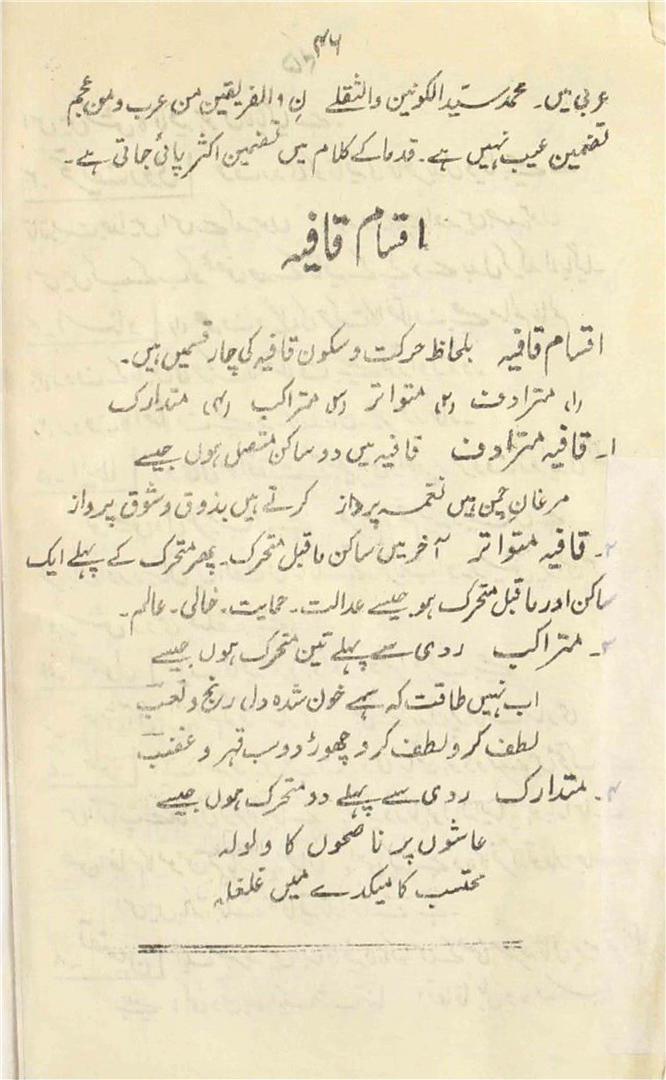 ۳۶
عربی میں۔ محمد سیّد الکونین والثقلے نِ والفریقین من عرب ومن عجم
تضمین عیب نہیں ہے۔ قدما کے کلام میں تضمین اکثر پائی جاتی ہے۔
اقسام قافیہ
اقسام قافیہ بلحاظ حرکت و سکون قافیہ کی چار قسمیں ہیں۔
(۱) مترادف (۲) متواتر (۳) متراکب (۴) متدارک
۱۔ قافیہ مترادف قافیہ میں دو ساکن متصل ہوں جیسے
مرغانِ چمن ہیں نغمہ پرداز کرتے ہیں بذوق وشوق پرواز
۲۔ قافیہ متواتر آخر میں ساکن ماقبل متحرک۔ پھر متحرک کے پہلے ایک
ساکن اور ماقبل متحرک ہو جیسے عدالت۔ حمایت۔ خالی۔ عالم۔
۳۔ متراکب روی سے پہلے تین متحرک ہوں جیسے
اب نہیں طاقت کہ سہے خون شدہ دل رنج و تعب
لطف کرو لطف کرو چھوڑ دو سب قہر و غضب
۴۔ متدارک روی سے پہلے دو متحرک ہوں جیسے
عاشقوں پر ناصحوں کا ولولہ
محتسب کا میکدے میں غلغلہ